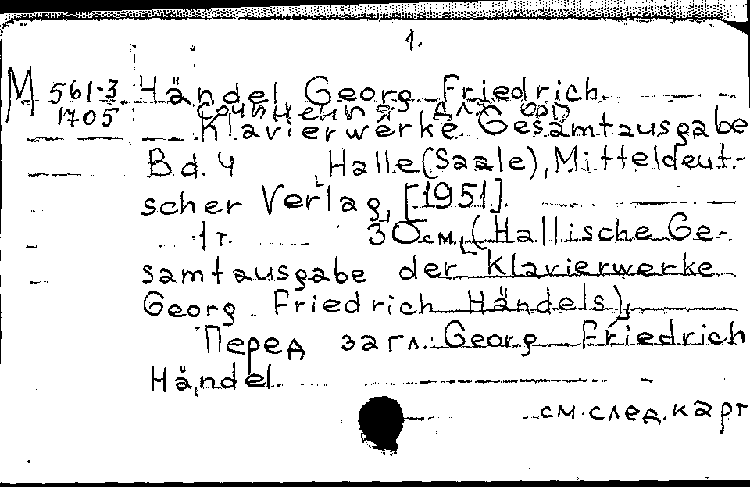 1.
M 561-3 Händel Georg Friedrich.
1705 Сочинения для фор
Klavierwerke Gesamtausgabe
Bd. 4 Halle (Saale), Mitteldeut-
scher Verlag, [1951].
1 т. 30 см. (Hallische Ge-
samtausgabe der Klavierwerke
Georg Friedrich Händels).
Перед загл.: Georg Friedrich
Händel.
см. след. карт